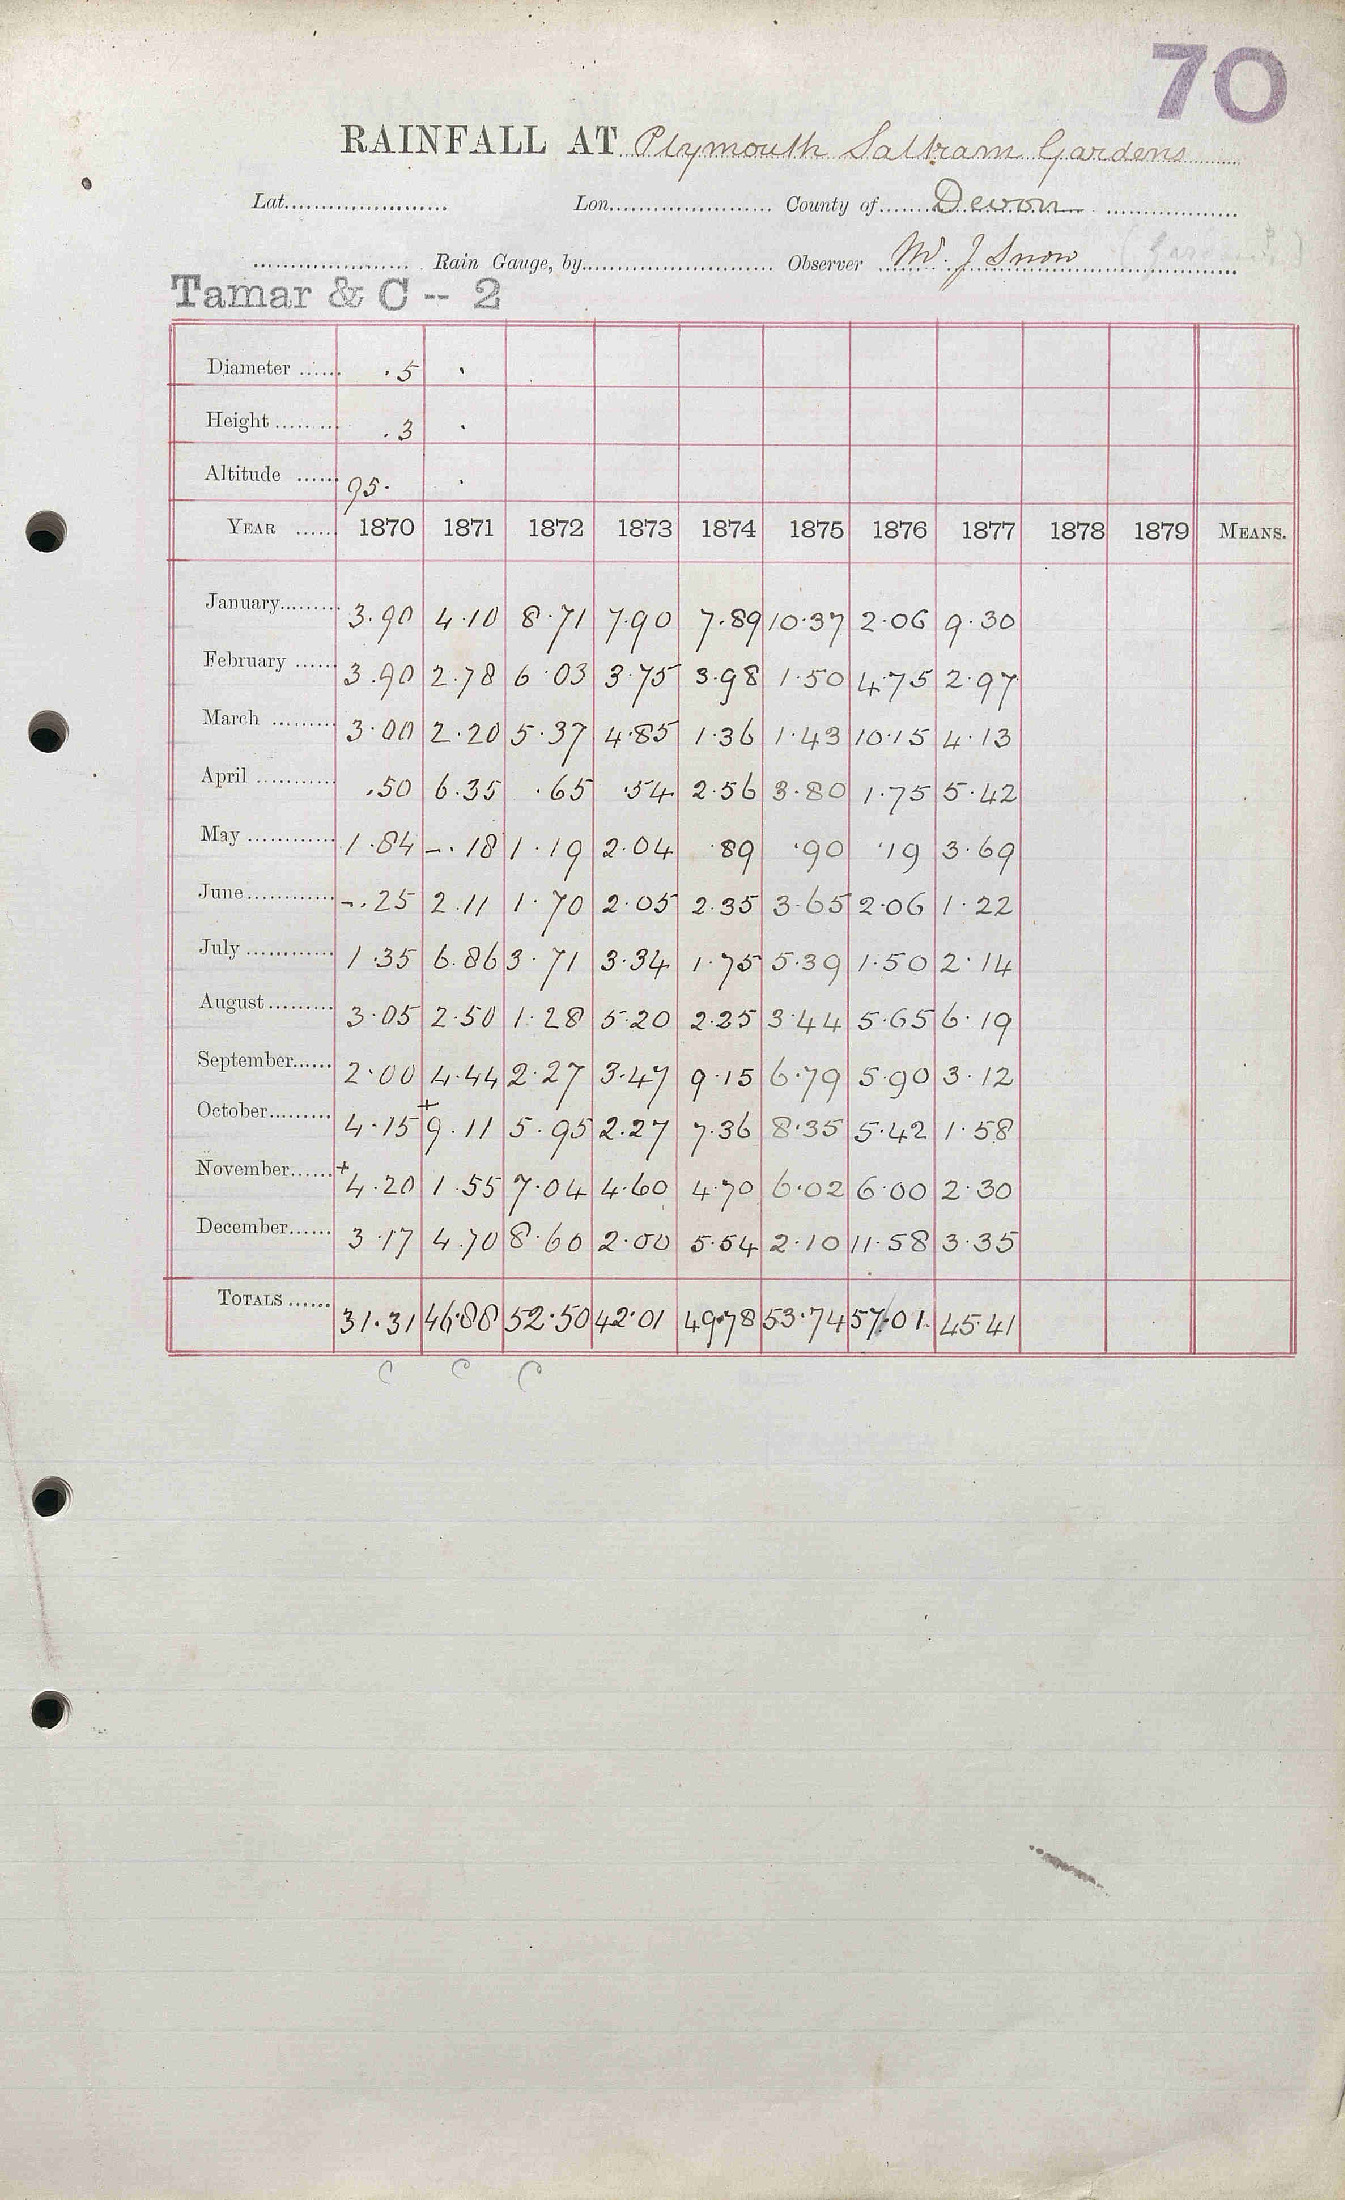 70
RAINFALL AT Plymouth Saltram Gardens
Lat. Lon. County of Devon
Rain Gauge, by Observer Mr. J Snow
Tamar & C -- 2
Diameter .5 .
Height .3 .
Altitude 95. .
YEAR 1870 1871 1872 1873 1874 1875 1876 1877 1878 1879 MEANS.
January 3.90 4.10 8.71 7.90 7.89 10.37 2.06 9.30
February 3.90 2.78 6.03 3.75 3.98 1.50 4.75 2.97
March 3.00 2.20 5.37 4.85 1.36 1.43 10.15 4.13
April .50 6.35 .65 .54 2.56 3.80 1.75 5.42
May 1.84 -.18 1.19 2.04 .89 .90 .19 3.69
June -.25 2.11 1.70 2.05 2.35 3.65 2.06 1.22
July 1.35 6.86 3.71 3.34 1.75 5.39 1.50 2.14
August 3.05 2.50 1.28 5.20 2.25 3.44 5.65 6.19
September 2.00 4.44 2.27 3.47 9.15 6.79 5.90 3.12
October 4.15 +9.11 5.95 2.27 7.36 8.35 5.42 1.58
November +4.20 1.55 7.04 4.60 4.70 6.02 6.00 2.30
December 3.17 4.70 8.60 2.00 5.54 2.10 11.58 3.35
TOTALS 31.31 46.88 52.50 42.01 49.78 53.74 57.01 45.41
C C C